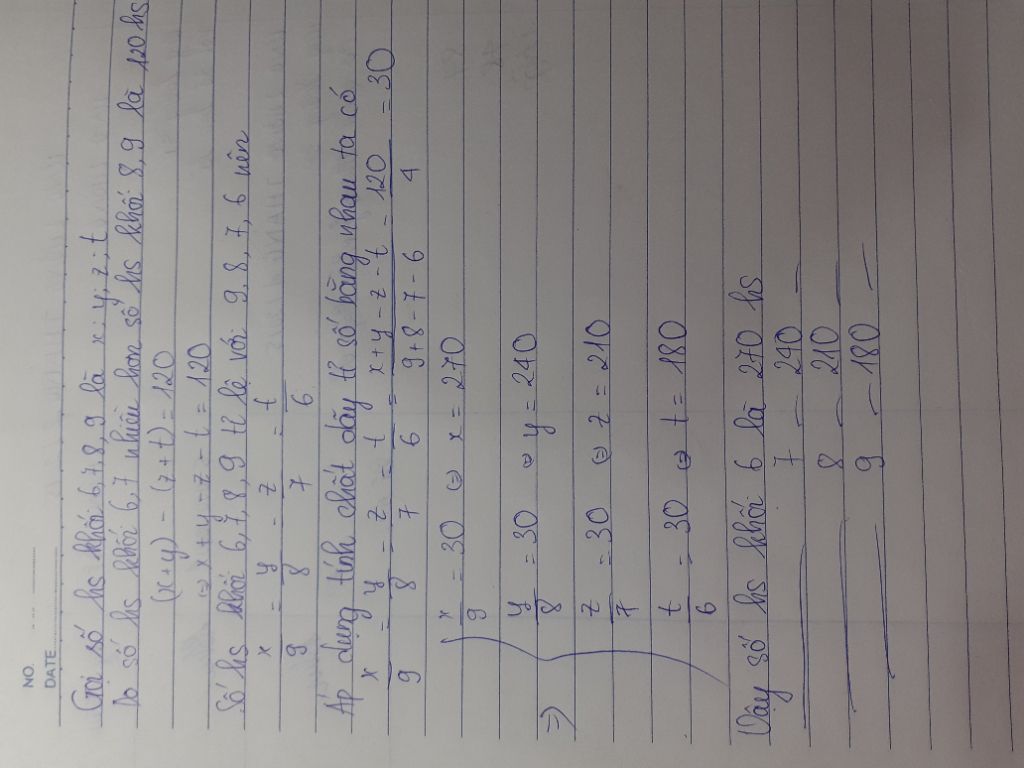 NO.
DATE
Gọi số hs khối 6,7,8,9 là x; y; z; t
Do số hs khối 6,7 nhiều hơn số hs khối 8,9 là 120 hs
(x+y) - (z+t) = 120
⇔ x + y - z - t = 120
Số hs khối 6,7,8,9 tỉ lệ với 9,8,7,6 nên
x/9 = y/8 = z/7 = t/6
Áp dụng tính chất dãy tỉ số bằng nhau ta có
x/9 = y/8 = z/7 = t/6 = x+y-z-t/9+8-7-6 = 120/4 = 30
x/9 = 30 ⇔ x = 270
⇒ y/8 = 30 ⇔ y = 240
z/7 = 30 ⇔ z = 210
t/6 = 30 ⇔ t = 180
Vậy số hs khối 6 là 270 hs
7 — 240 —
8 — 210 —
9 — 180 —